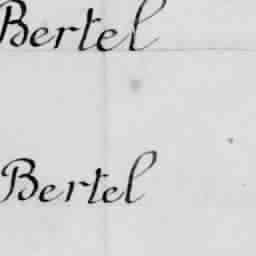 Bertel
Bertel